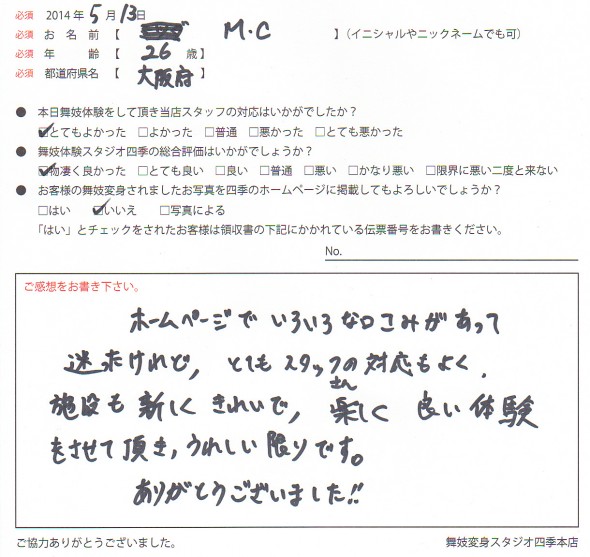 必須 2014年5月13日
必須 お名前【 M.C 】(イニシャルやニックネームでも可)
必須 年齢【 26 歳】
必須 都道府県名【 大阪府 】
● 本日舞妓体験をして頂き当店スタッフの対応はいかがでしたか?
☑とてもよかった □よかった □普通 □悪かった □とても悪かった
● 舞妓体験スタジオ四季の総合評価はいかがでしょうか?
☑物凄く良かった □とても良い □良い □普通 □悪い □かなり悪い □限界に悪い二度と来ない
● お客様の舞妓変身されましたお写真を四季のホームページに掲載してもよろしいでしょうか?
□はい ☑いいえ □写真による
「はい」とチェックをされたお客様は領収書の下記にかかれている伝票番号をお書きください。
No.
ご感想をお書き下さい。
ホームページでいろいろな口こみがあって
迷たけれど, とてもスタッフさんの対応もよく,
施設も新しくきれいで, 楽しく良い体験
をさせて頂き, うれしい限りです。
ありがとうございました!!
ご協力ありがとうございました。
舞妓変身スタジオ四季本店